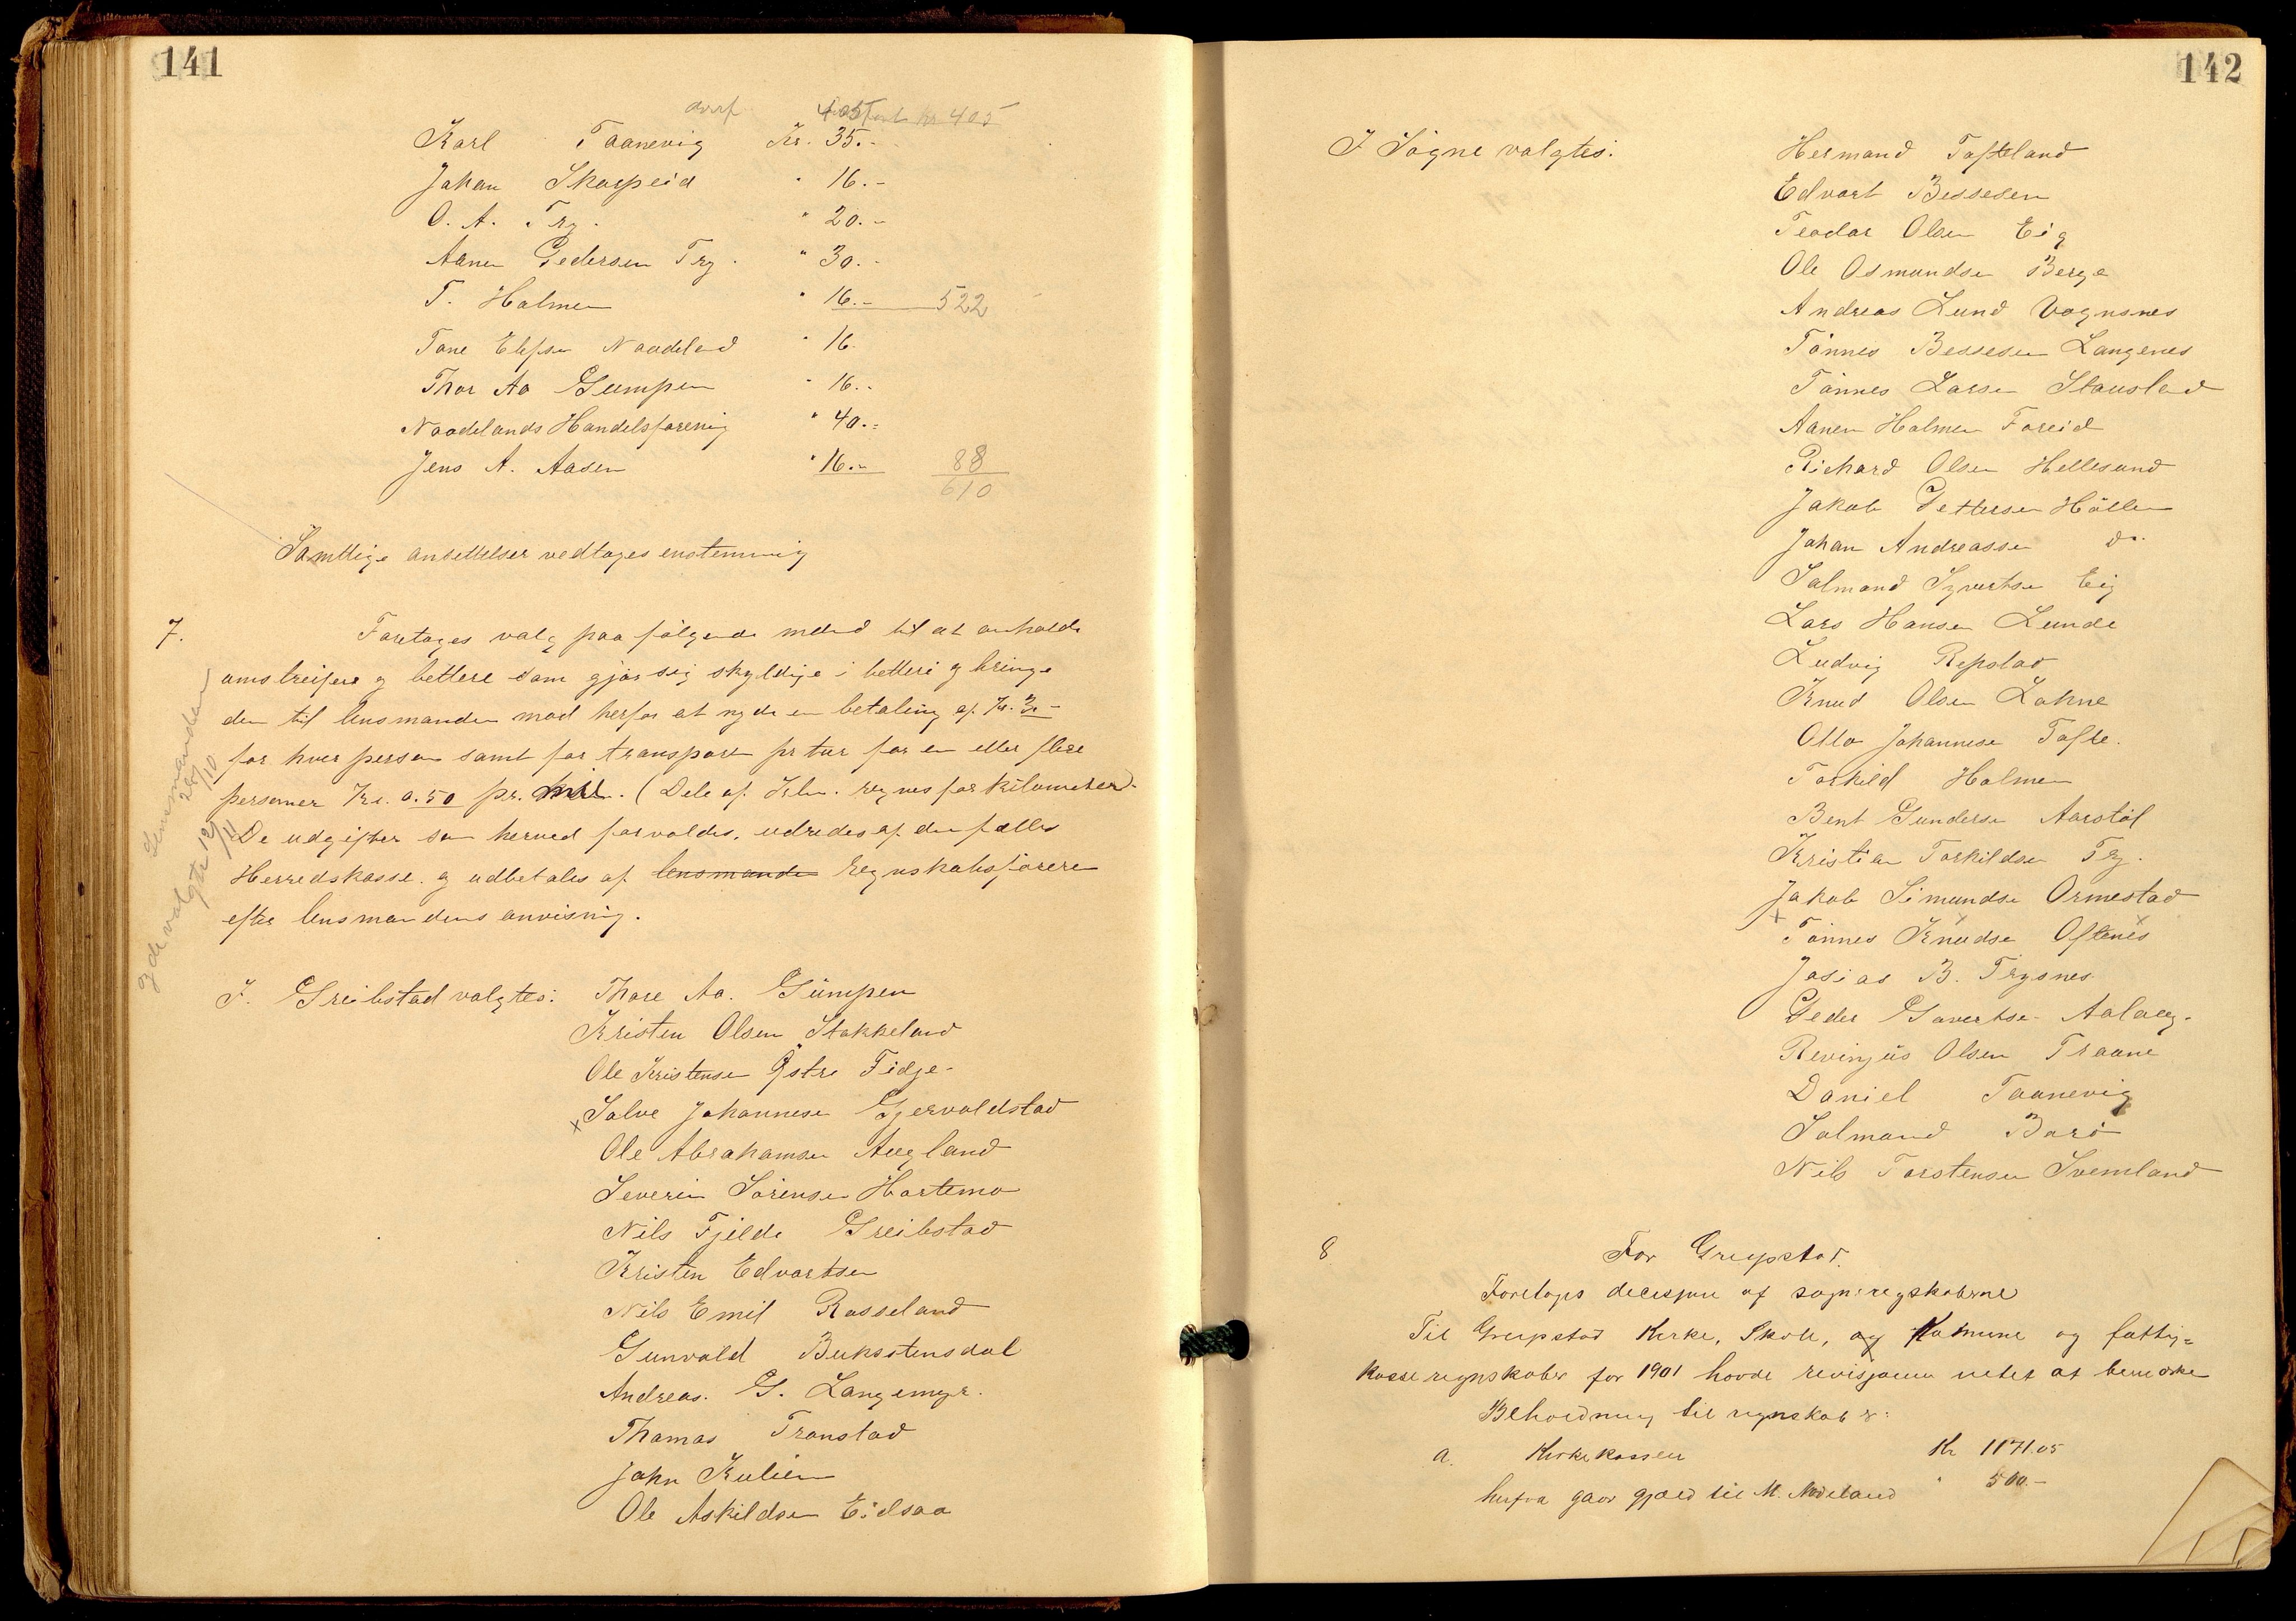 141
overf. 405 kr 405
Karl Taanevig Kr. 35.-
Johan Skarpeid " 16.-
O. A. Try. " 20.-
Aanen Pedersen Try. " 30.-
T. Holmen " 16.- 522
Tone Elefsen Noodeland " 16.
Thor Aa Gumpen " 16.-
Noodelands Handelsforening " 40.-
Jens A. Aasen " 16.- 88
610
Samtlige ansettelser vedtoges enstemmig
7. Foretoges valg paa følgende mænd til at anholde
omstreifere og betlere som gjør sig skyldige i betleri og bringe
dem til lensmanden mod herfor at nyde en betaling af Kr. 3.-
for hver person samt for transport pr tur for en eller flere
personer Kr. 0.50 pr. mil. (Dele af Klm. regnes for kilometer).
De udgifter som herved forvoldes, udredes af den fælles
Herredskasse. og udbetales af lensmanden regnskabsføreren
efter lensmandens anvisning.
Lensmanden 28/10
og de valgte 12/11
I. Greibstad valgtes: Thore Aa. Gumpen
Kristen Olsen Stokkeland
Ole Kristensen Østre Fidje.
x Salve Johannesen Gjervoldstad
Ole Abrahamsen Augland
Severin Sørensen Hortemo
Nils Fjelde Greibstad
Kristen Edvartsen
Nils Emil Rosseland
Gunvald Buksstensdal
Andreas. G. Langemyr.
Thomas Tronstad
John Kulien
Ole Askildsen Eidsaa
142
I Søgne valgtes: Hermand Tofteland
Edvart Bessesen
Teodor Olsen Eig
Ole Osmundsen Berge
Andreas Lund Vognsnes
Tønnes Bessesen Langenes
Tønnes Larsen Stausland
Aanen Holmen Toreid
Richard Olsen Hellesund
Jakob Pettersen Høllen
Johan Andreassen do.
Salmand Syvertsen Eig
Lars Hansen Lunde
Ludvig Repstad
Knud Olsen Lohne
Otto Johannesen Tofte.
Torkild Holmen
Bent Gundersen Aarstøl
Kristian Torkildsen Try.
Jakob Simundsen Ormestad
x Tønnes Knudsen Oftenes
Josias B. Trysnes
Peder Govertsen Aaloey.
Revinjus Olsen Traane
Daniel Taanevig
Salmand Borø
Nils Torstensen Svemland
8 For Greipstad.
Foretoges decisjon af sogneregskaberne
Til Greipstad Kirke, Skole, og Komune og fattig=
kasseregnskaber for 1901 havde revisjonen intet at bemerke
Beholdning til regnskab er:
a. Kirkekassen Kr 1171.05
herfra gaar gjæld til M. Nodeland " 500.-